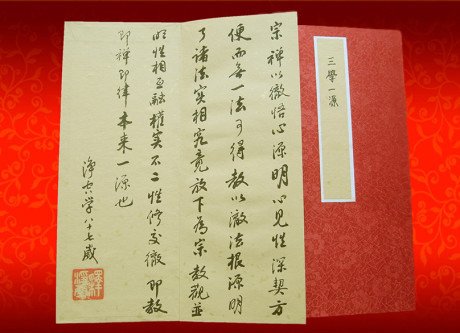 三學一源
宗禪以徹悟心源明心見性深契方
便而無一法可得教以澈法根源明
了諸法實相究竟放下為宗教觀並
明性相互融權實不二性修交徹即教
即禪即律本來一源也
淨空学八十七歲